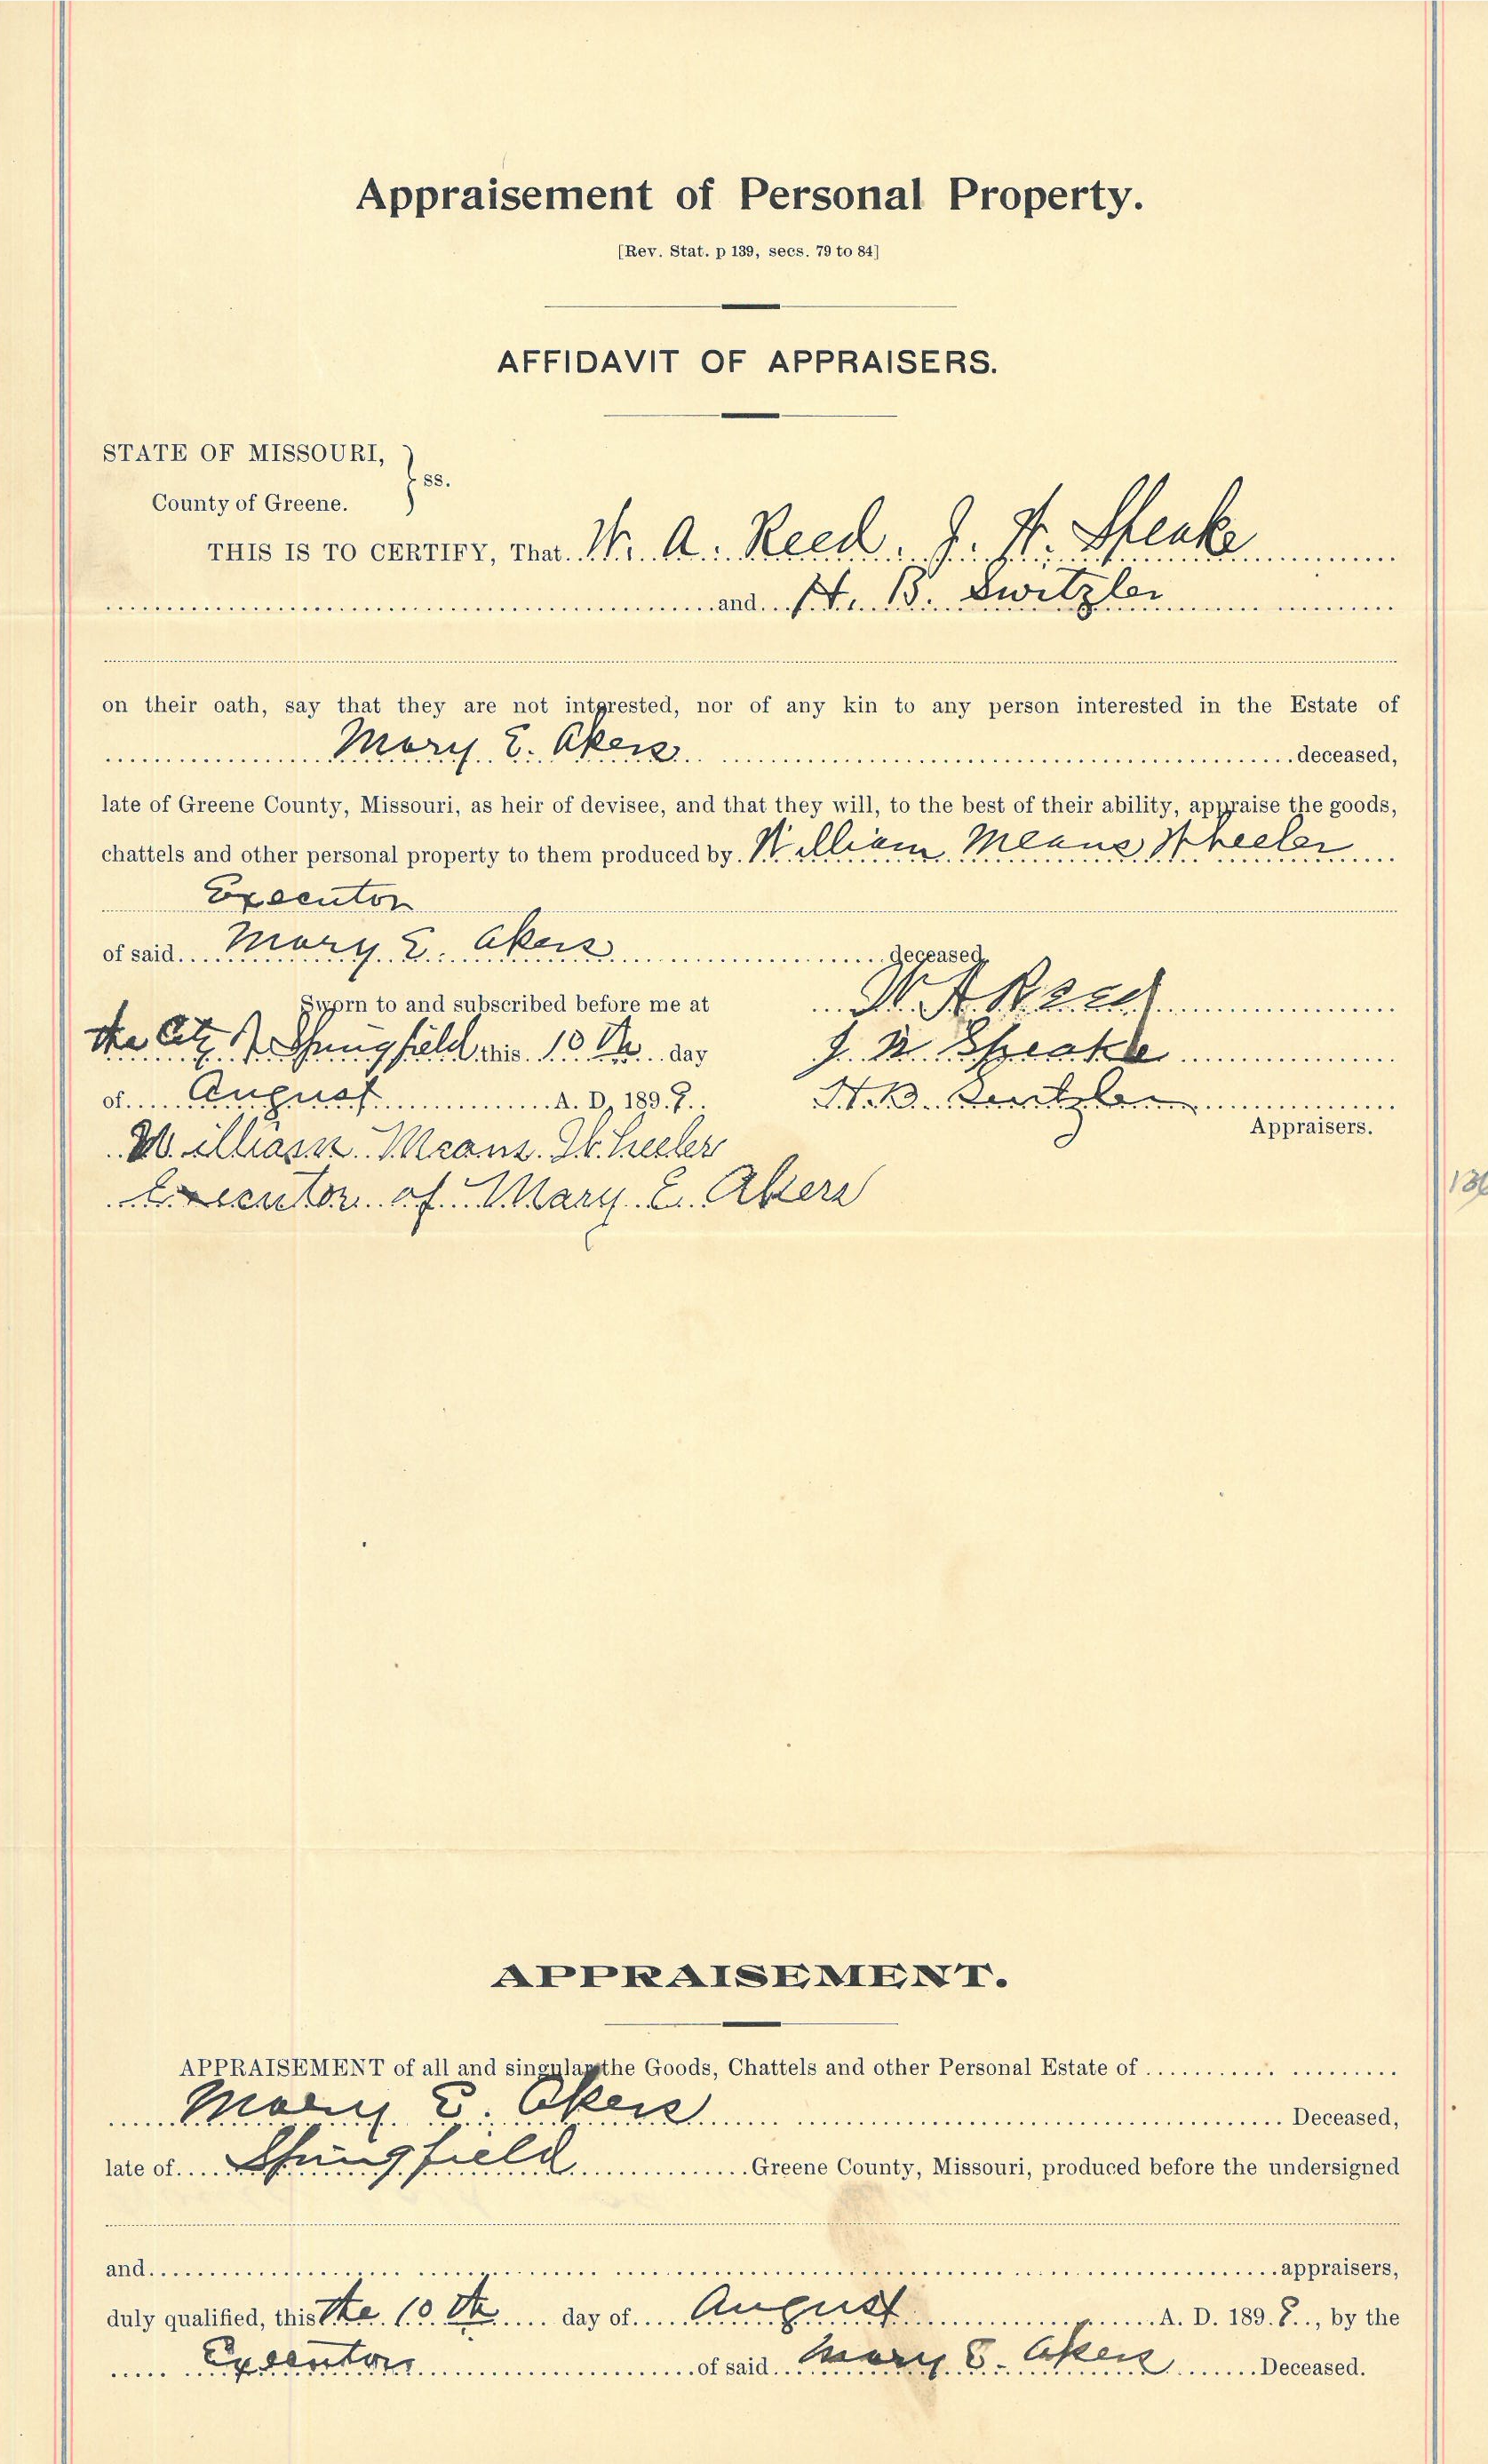 Appraisement of Personal Property.
[Rev. Stat. p 139, secs. 79 to 84]
AFFIDAVIT OF APPRAISERS.
STATE OF MISSOURI,
ss.
County of Greene.
THIS IS TO CERTIFY, That W. A. Reed. J. W. Speake
and H. B. Switzler
on their oath, say that they are not interested, nor of any kin to any person interested in the Estate of
Mary E. Akers deceased,
late of Greene County, Missouri, as heir of devisee, and that they will, to the best of their ability, appraise the goods,
chattels and other personal property to them produced by William Means Wheeler
Executor
of said Mary E. Akers deceased.
Sworn to and subscribed before me at
the City of Springfield this 10th day
of August A. D. 189
William Means Wheeler
Executor of Mary E. Akers
W A Reed
J W Speake
H. B. Switzler
Appraisers.
APPRAISEMENT.
APPRAISEMENT of all and singular the Goods, Chattels and other Personal Estate of
Mary E. Akers Deceased,
late of Springfield Greene County, Missouri, produced before the undersigned
and appraisers,
duly qualified, this the 10th day of August A. D. 189 , by the
Executor of said Mary E. Akers Deceased.